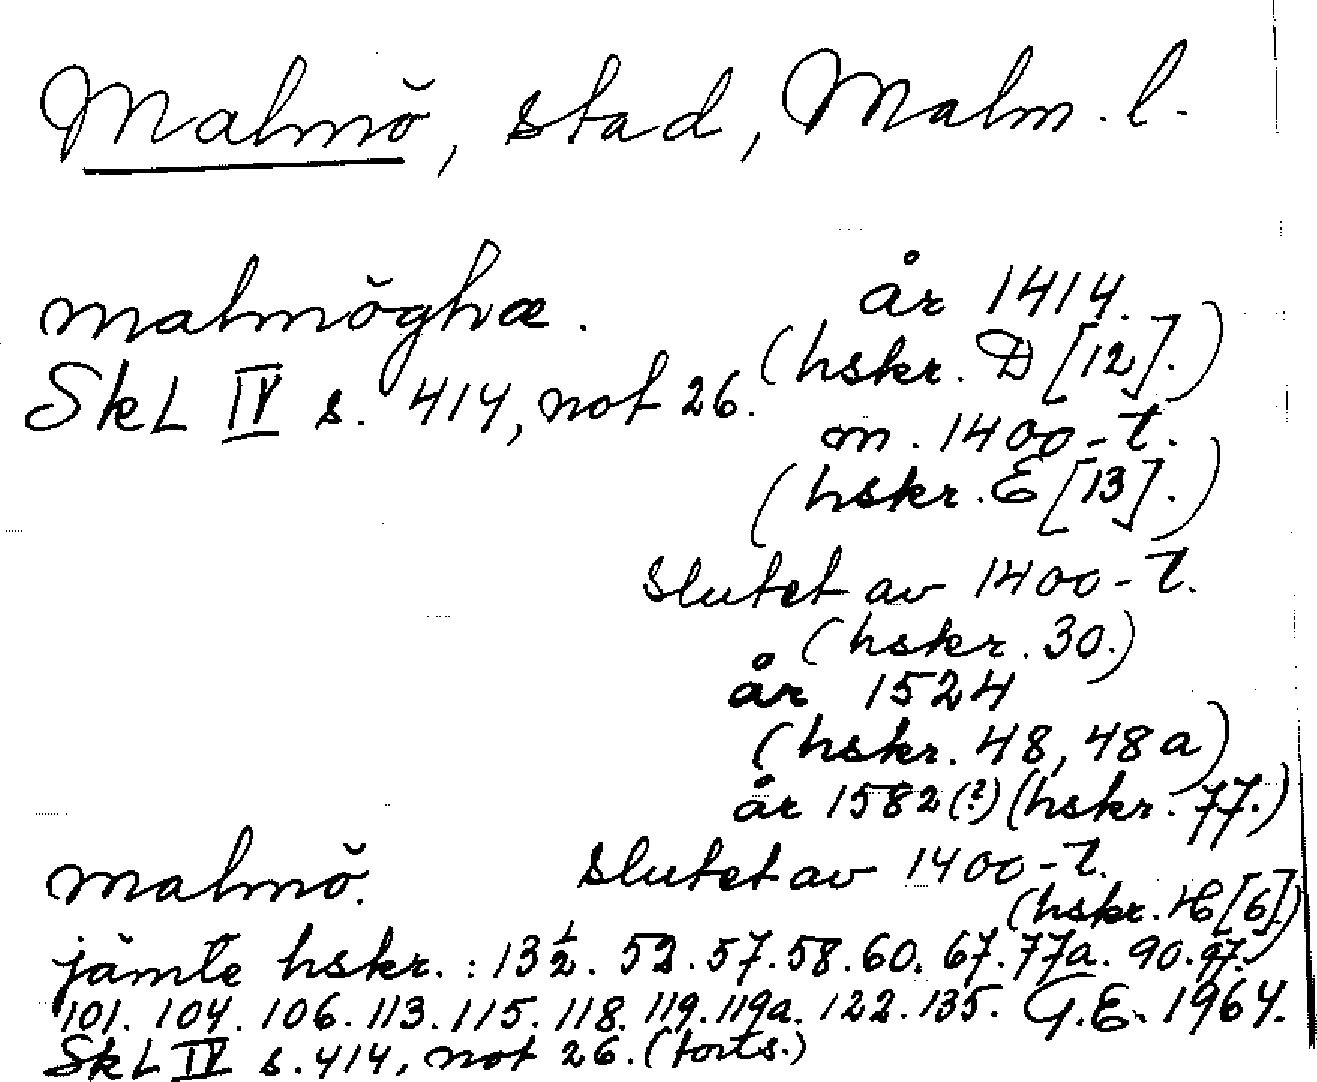 Malmö, stad, Malm. l.
malmöghæ. år 1414.
(hskr. D [12].)
SkL IV s. 414, not 26.
m. 1400-t.
(hskr. E [13].)
slutet av 1400-t.
(hskr. 30.)
år 1524
(hskr. 48, 48a)
år 1582(?) (hskr. 77.)
malmö. slutet av 1400-t.
(hskr. H [6])
jämte hskr.: 13½. 52. 57. 58. 60. 67. 77a. 90. 97.
101. 104. 106. 113. 115. 118. 119. 119a. 122. 135. G.E. 1964.
SkL IV s. 414, not 26. (forts.)